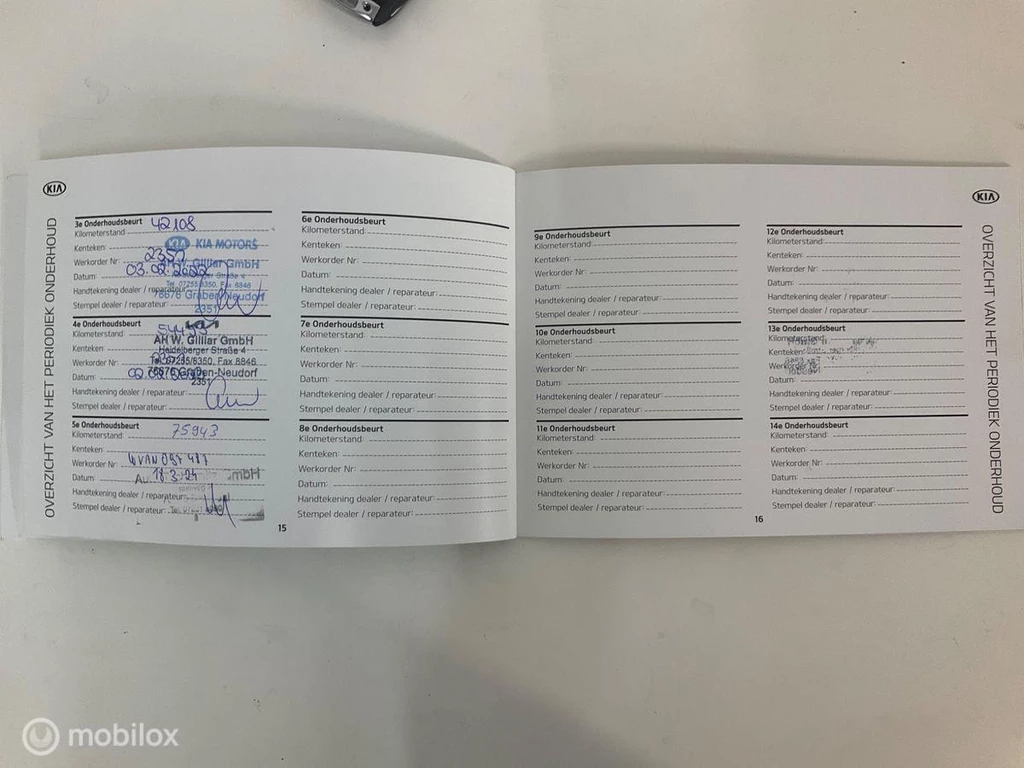 KIA
OVERZICHT VAN HET PERIODIEK ONDERHOUD
3e Onderhoudsbeurt
Kilometerstand: 42108
Kenteken:
KIA KIA MOTORS
Werkorder Nr: 2351
AH W. Gilliar GmbH
Datum: 03.02.2022
Tel. 07255/8350, Fax 8846
Handtekening dealer / reparateur:
76676 Graben-Neudorf
Stempel dealer / reparateur:
2351
4e Onderhoudsbeurt
Kilometerstand:
KIA
AH W. Gilliar GmbH
Kenteken:
Heidelberger Straße 4
Werkorder Nr:
Tel. 07255/8350, Fax 8846
Datum:
76676 Graben-Neudorf
2351
Handtekening dealer / reparateur:
Stempel dealer / reparateur:
5e Onderhoudsbeurt
Kilometerstand: 75943
Kenteken:
Werkorder Nr:
Datum: 18.3.24
mbH
Handtekening dealer / reparateur:
Stempel dealer / reparateur:
6e Onderhoudsbeurt
Kilometerstand:
Kenteken:
Werkorder Nr:
Datum:
Handtekening dealer / reparateur:
Stempel dealer / reparateur:
7e Onderhoudsbeurt
Kilometerstand:
Kenteken:
Werkorder Nr:
Datum:
Handtekening dealer / reparateur:
Stempel dealer / reparateur:
8e Onderhoudsbeurt
Kilometerstand:
Kenteken:
Werkorder Nr:
Datum:
Handtekening dealer / reparateur:
Stempel dealer / reparateur:
15
9e Onderhoudsbeurt
Kilometerstand:
Kenteken:
Werkorder Nr:
Datum:
Handtekening dealer / reparateur:
Stempel dealer / reparateur:
10e Onderhoudsbeurt
Kilometerstand:
Kenteken:
Werkorder Nr:
Datum:
Handtekening dealer / reparateur:
Stempel dealer / reparateur:
11e Onderhoudsbeurt
Kilometerstand:
Kenteken:
Werkorder Nr:
Datum:
Handtekening dealer / reparateur:
Stempel dealer / reparateur:
12e Onderhoudsbeurt
Kilometerstand:
Kenteken:
Werkorder Nr:
Datum:
Handtekening dealer / reparateur:
Stempel dealer / reparateur:
13e Onderhoudsbeurt
Kilometerstand:
Kenteken:
Werkorder Nr:
Datum:
Handtekening dealer / reparateur:
Stempel dealer / reparateur:
14e Onderhoudsbeurt
Kilometerstand:
Kenteken:
Werkorder Nr:
Datum:
Handtekening dealer / reparateur:
Stempel dealer / reparateur:
16
KIA
OVERZICHT VAN HET PERIODIEK ONDERHOUD
mobilox